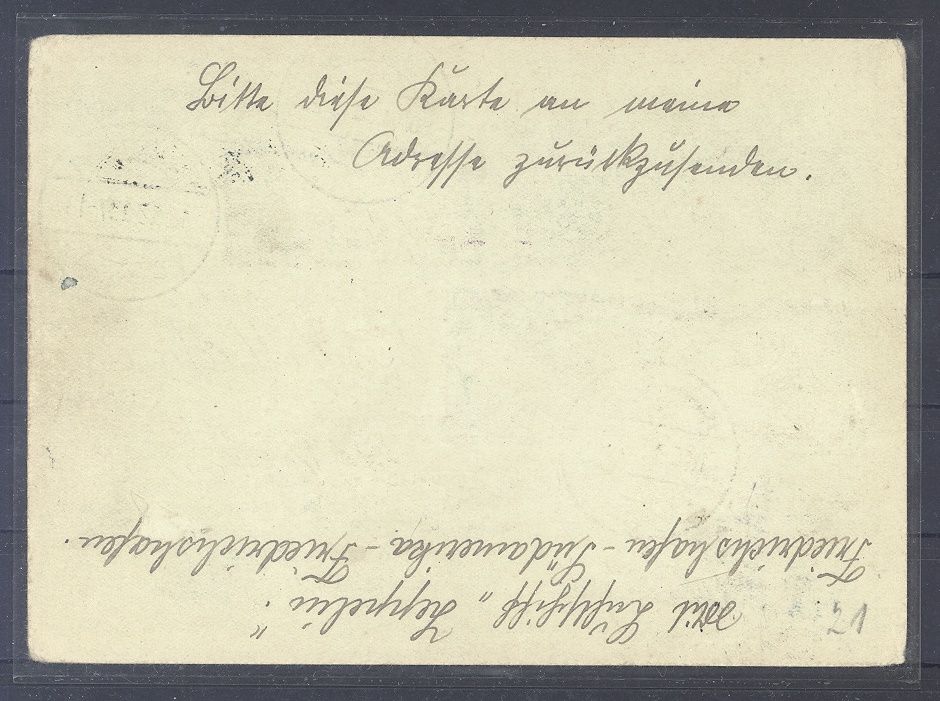 Bitte diese Karte an meine
Adresse zurückzusenden.
Mit Luftschiff „Zeppelin“.
Friedrichshafen - Südamerika - Friedrichshafen.
21